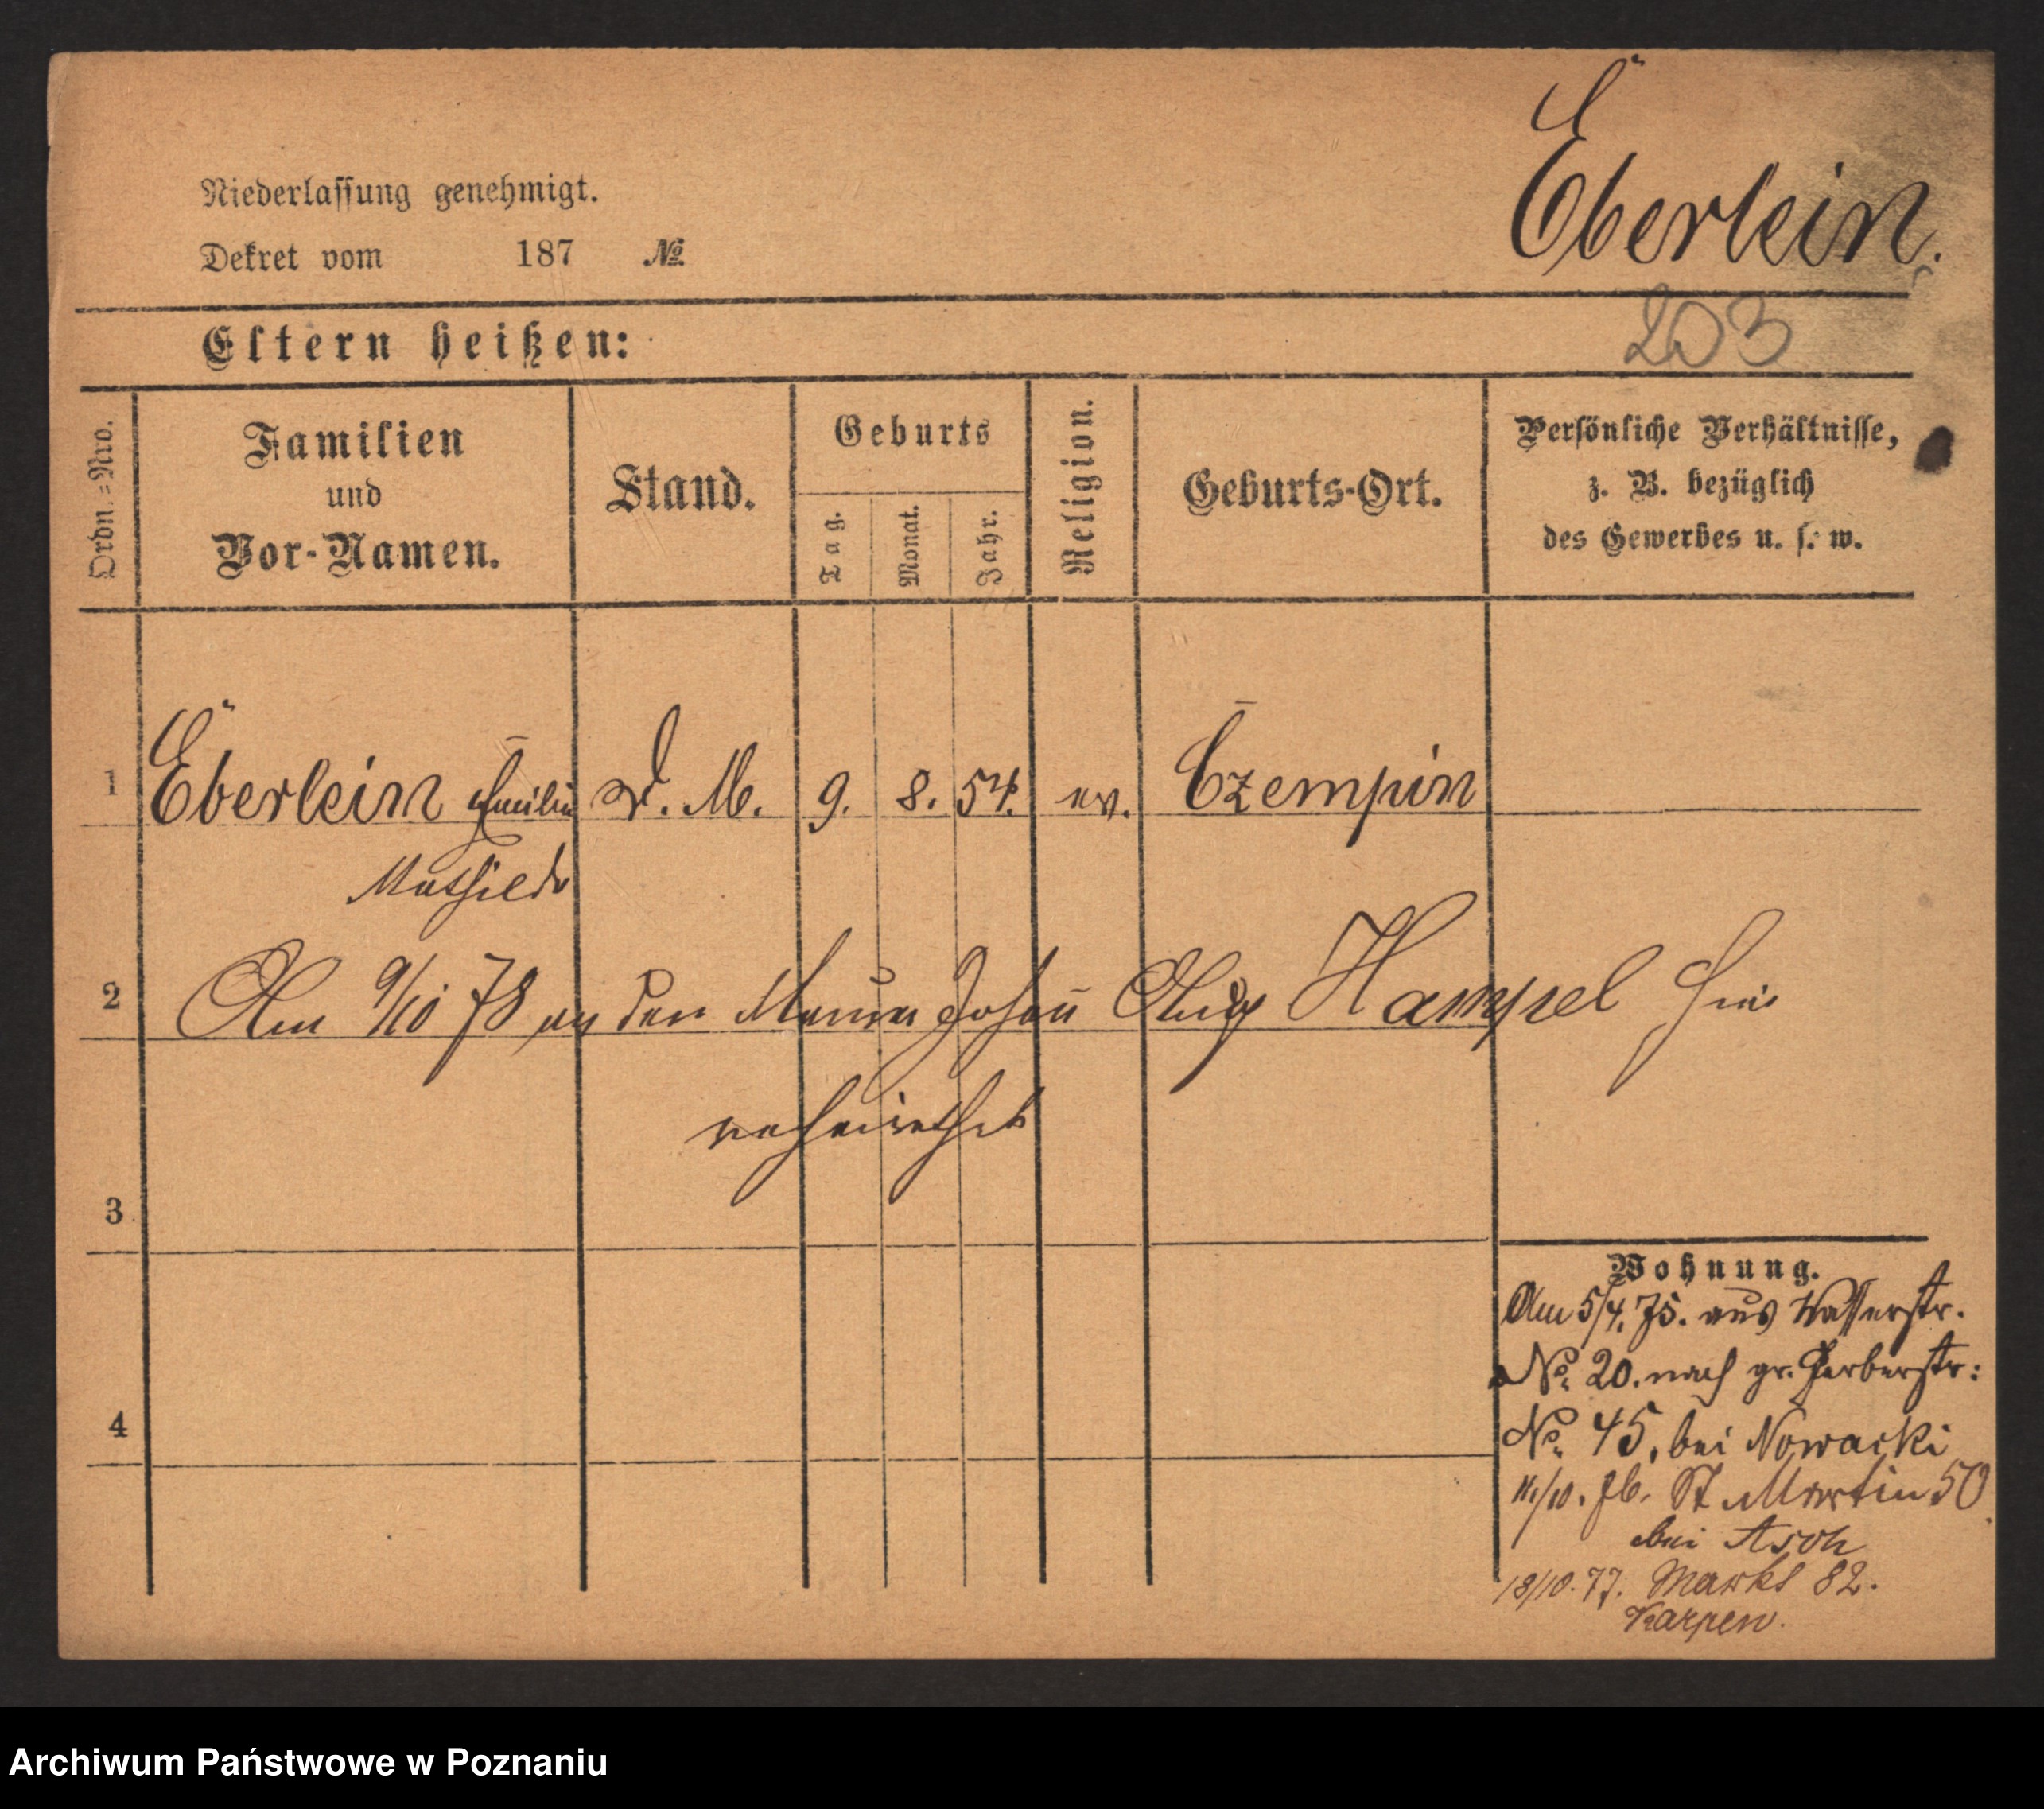 Eberlein.
Niederlassung genehmigt.
Dekret vom 187 №
203
Eltern heißen:
Ordn.=Nro.
Familien
und
Vor-Namen.
Stand.
Geburts
Tag.
Monat.
Jahr.
Religion.
Geburts-Ort.
Persönliche Verhältnisse,
z. B. bezüglich
des Gewerbes u. s. w.
1 Eberlein Emilie D. M. 9. 8. 54. ev. Czempin
Mathilde
2 Am 9/10 78 an den Maurer Johan̄ Aug Hampel hier
verheirathet
3
Wohnung.
Am 5/4. 75. aus Wasserstr.
No. 20. nach gr. Gerberstr:
4
No. 45. bei Nowacki
11/10. 76. St Martin 50
bei Asch
18/10. 77. Markt 82.
Karpen.
Archiwum Państwowe w Poznaniu